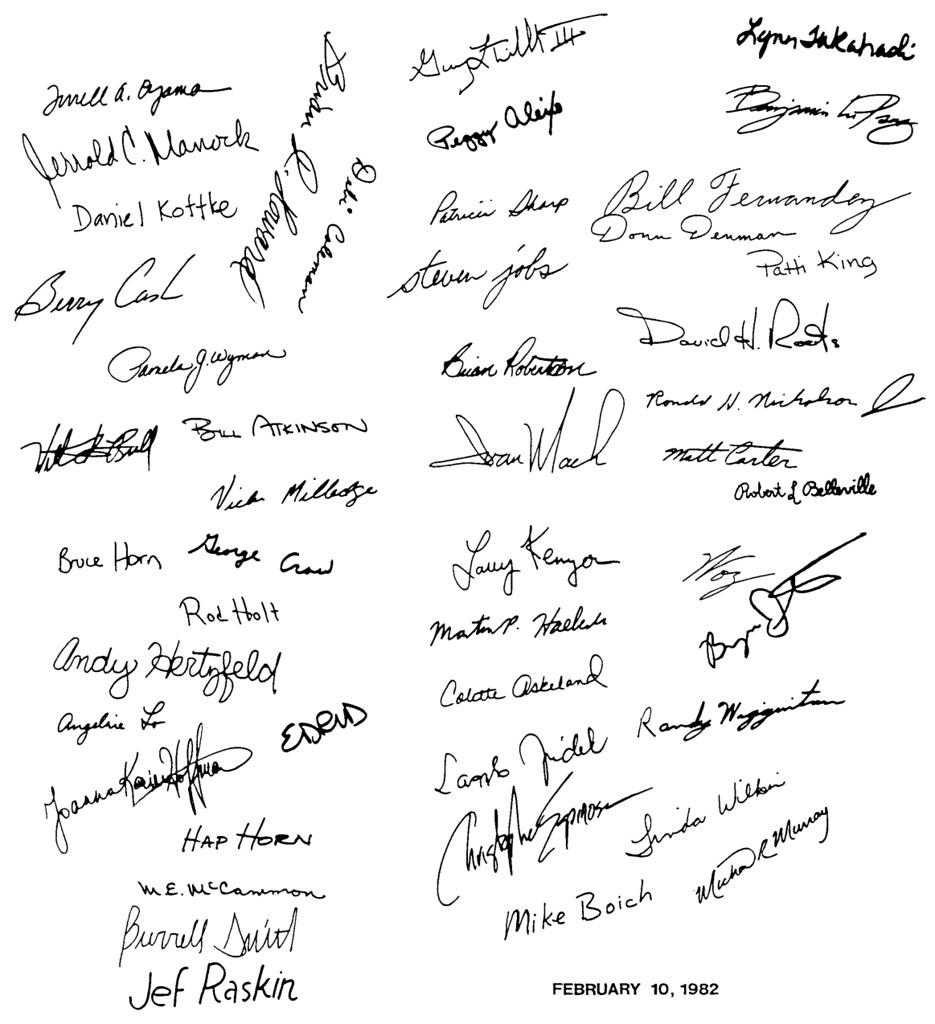 Terrell A. Oyama
Jerrold C. Manock
Daniel Kottke
Brian R. Howard
Debi Coleman
Berry Cash
Pamela J. Wyman
Bill Atkinson
Vicki Milledge
Bruce Horn
George Crow
Rod Holt
Andy Hertzfeld
Angeline Lo
Joanna Karin Hoffman
Hap Horn
M.E. McCammon
Burrell Smith
Jef Raskin
III
Peggy Alexio
Patricia Sharp
steven jobs
Brian Robertson
Larry Kenyon
Martin P. Haeberli
Colette Askeland
Christopher Espinosa
Mike Boich
Lynn Takahashi
Benjamin
Bill Fernandez
Donn Denman
Patti King
David H. Roots
Ronald H. Nicholson Jr
Matt Carter
Robert L Belleville
Woz
Randy Wigginton
Linda Wilkin
Michael R Murray
FEBRUARY 10, 1982